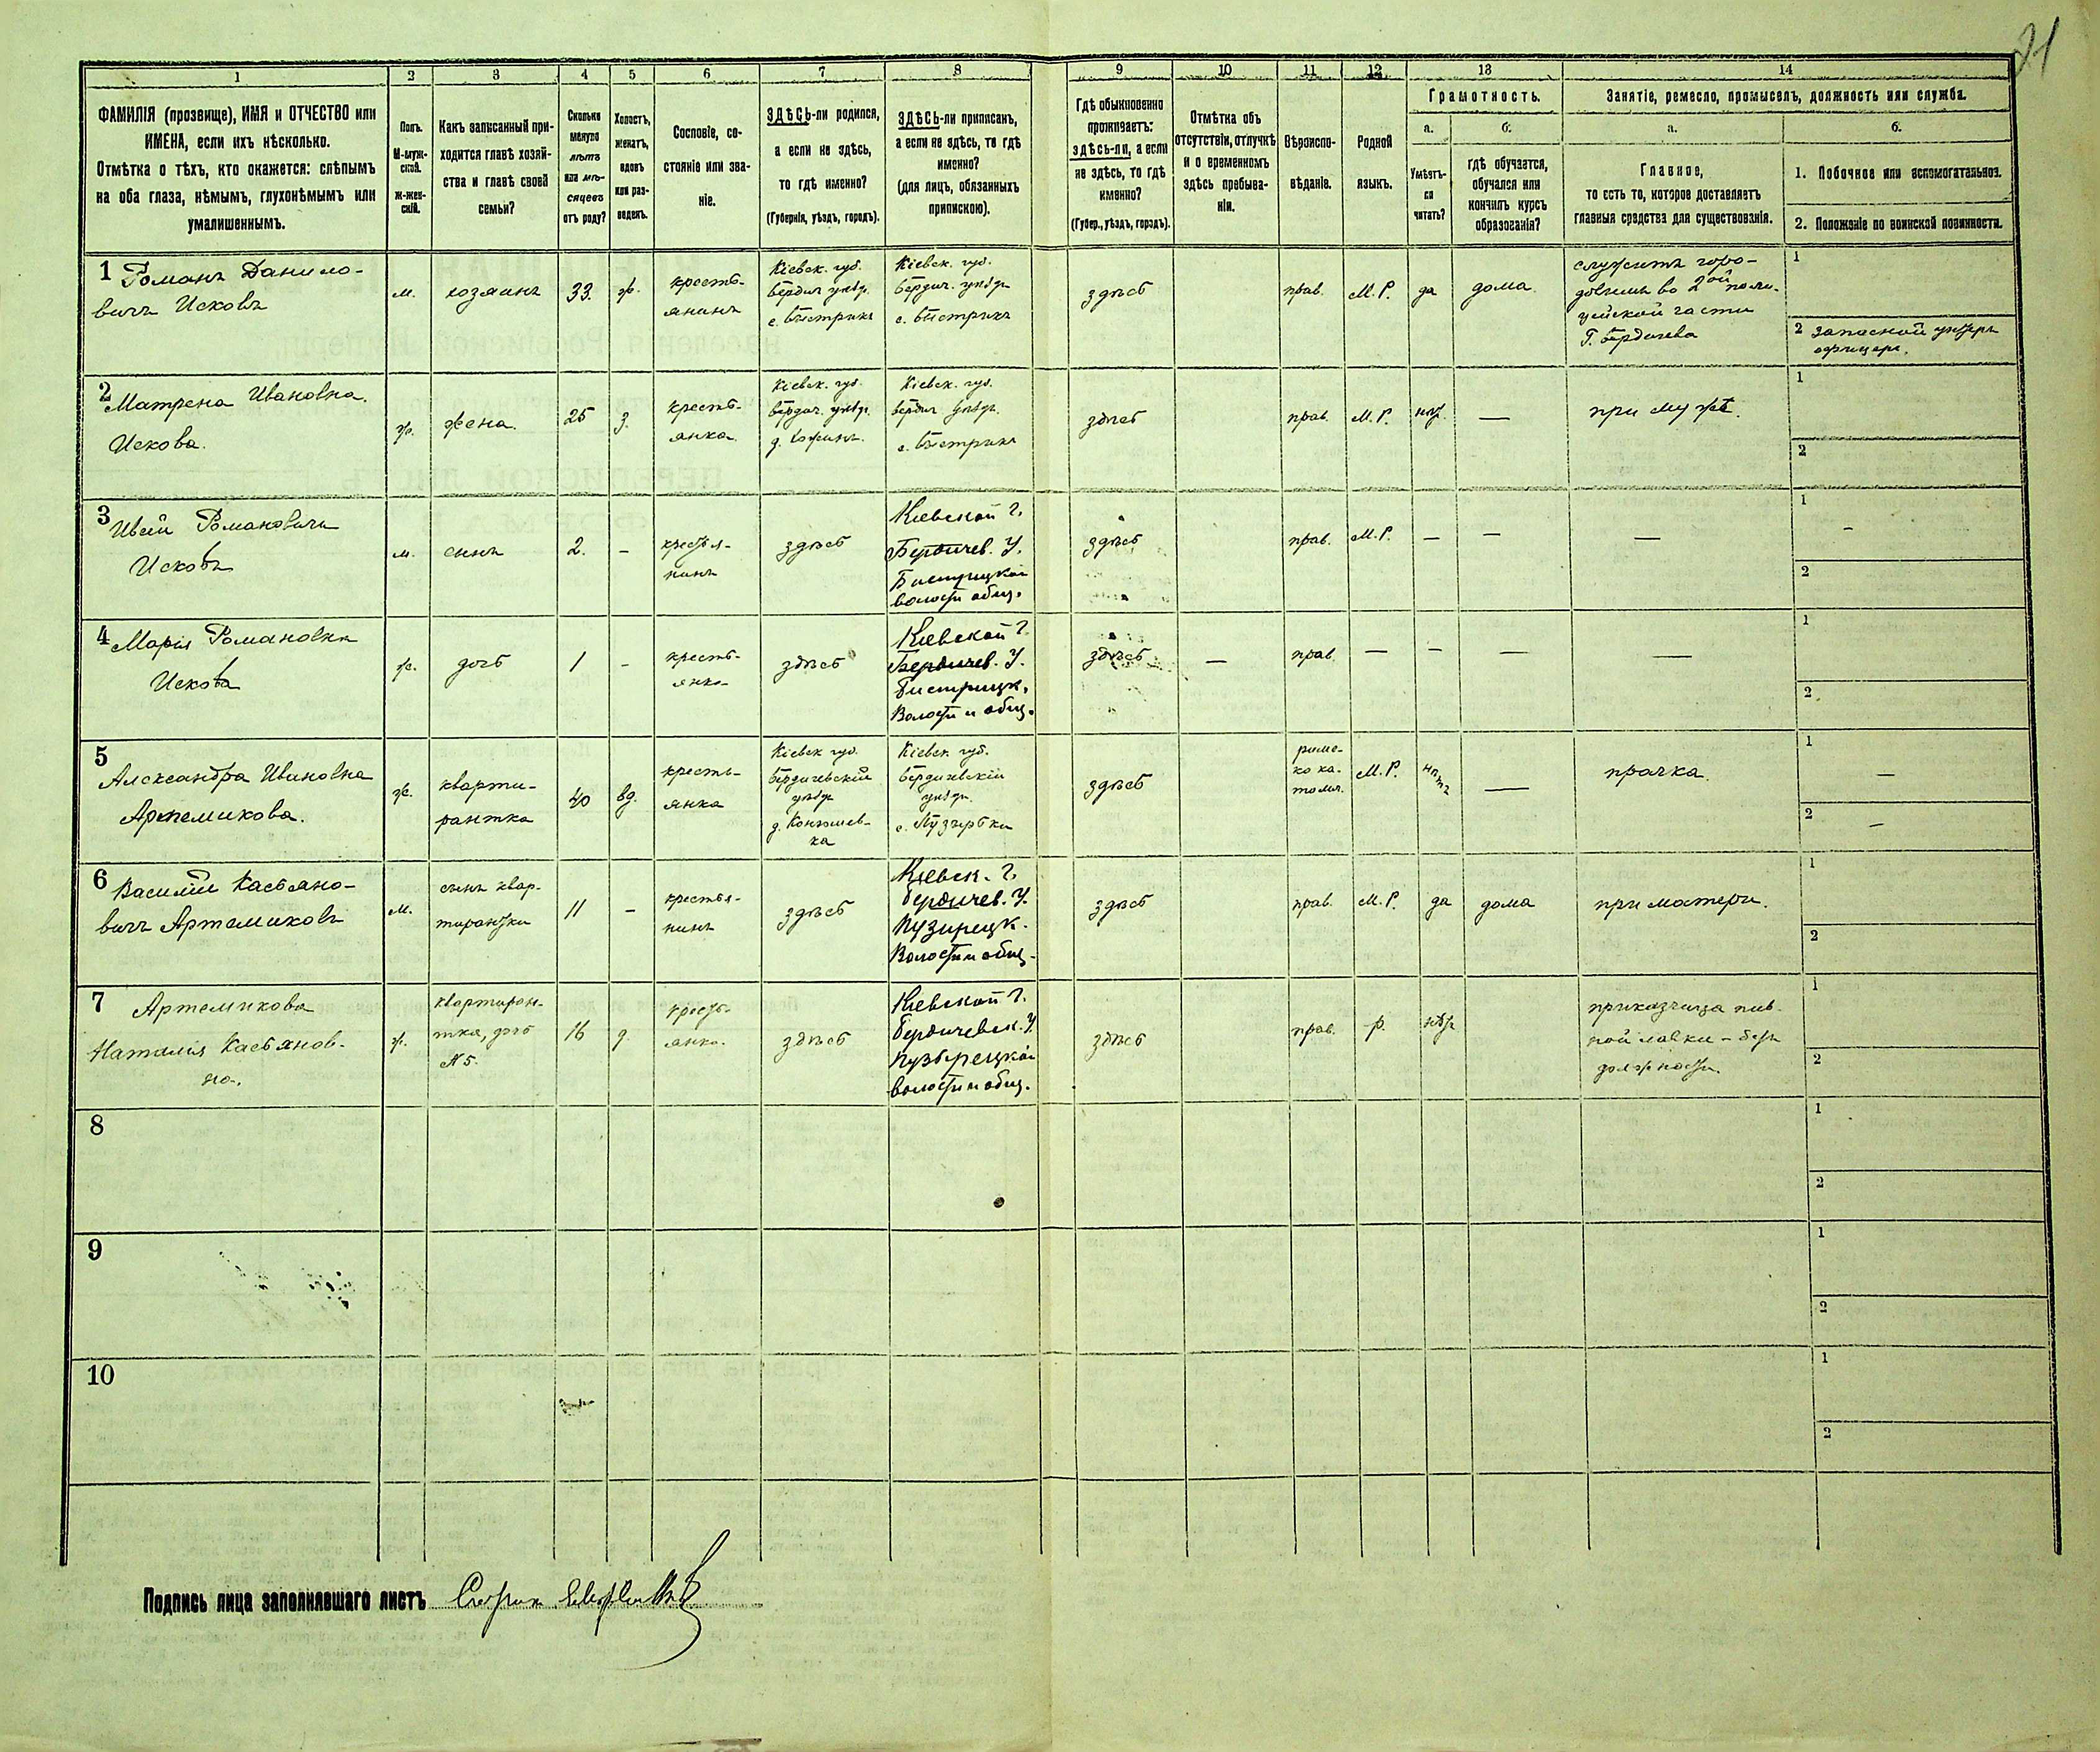 21
1 2 3 4 5 6 7 8 9 10 11 12 13 14
ФАМИЛІЯ (прозвище), ИМЯ и ОТЧЕСТВО или
ИМЕНА, если ихъ нѣсколько.
Отмѣтка о тѣхъ, кто окажется: слѣпымъ
на оба глаза, нѣмымъ, глухонѣмымъ или
умалишеннымъ.
Полъ.
М-муж-
ской.
Ж-жен-
скій.
Какъ записанный при-
ходится главѣ хозяй-
ства и главѣ своей
семьи?
Сколько
минуло
лѣтъ
или мѣ-
сяцевъ
отъ роду?
Холостъ,
женатъ,
вдовъ
или раз-
веденъ.
Сословіе, со-
стояніе или зва-
ніе.
ЗДѢСЬ-ли родился,
а если не здѣсь,
то гдѣ именно?
(Губернія, уѣздъ, городъ).
ЗДѢСЬ-ли приписанъ,
а если не здѣсь, то гдѣ
именно?
(для лицъ, обязанныхъ
припискою).
Гдѣ обыкновенно
проживаетъ:
здѣсь-ли, а если
не здѣсь, то гдѣ
именно?
(Губер., уѣздъ, городъ).
Отмѣтка объ
отсутствіи, отлучкѣ
и о временномъ
здѣсь пребыва-
ніи.
Вѣроиспо-
вѣданіе.
Родной
языкъ.
Грамотность.
а.
Умѣетъ-
ли
читать?
б.
гдѣ обучается,
обучался или
кончилъ курсъ
образованія?
Занятіе, ремесло, промыселъ, должность или служба.
а.
Главное,
то есть то, которое доставляетъ
главныя средства для существованія.
б.
1. Побочное или вспомогательное.
2. Положеніе по воинской повинности.
1 Романъ Данило-
вичъ Исковъ
м.
хозяинъ
33.
ж.
кресть-
янинъ
Кіевск. губ.
Бердич уѣзд.
с. Быстрикъ
Кіевск. губ.
Бердич. уѣзда
с. Быстрикъ
здѣсь
прав.
М. Р.
да
дома
служитъ горо-
довымъ во 2ой поли-
цейской части
Г. Бердичева
1
2 запасной унтеръ
офицеръ.
2 Матрена Ивановна.
Искова.
ж.
жена.
25
з.
кресть-
янка.
Кіевск. губ.
Бердич. уѣзд.
Кіевск. губ.
Бердич уѣзд.
с. Быстрикъ
здѣсь
прав.
М. Р.
нѣт.
—
при мужѣ.
1
2
3 Романовичъ
Исковъ
м.
сынъ
2.
—
крестья-
нинъ
здѣсь
Кіевской г.
Бердичев. У.
Быстрицкой
волости общ.
здѣсь
прав.
М. Р.
—
—
—
1
—
2
4 Марія Романовна
Искова
ж.
дочь
1
—
кресть-
янка
здѣсь
Кіевской г.
Бердичев. У.
Быстрицк.
Волости и общ.
здѣсь
—
прав.
—
—
—
—
1
2
5
Александра Ивановна
Артемикова.
ж.
кварти-
рантка
40
вд.
кресть-
янка
Кіевск губ.
Бердичевскій
уѣзд
д. Конюшев-
ка
Кіевск. губ.
Бердичевскій
уѣзд.
с. Пузырьки
здѣсь
риме-
ко ка-
толич.
М. Р.
нѣтъ
—
прачка.
1
—
2
—
6 Василій Касьяно-
вичъ Артемиковъ
м.
сынъ квар-
тирантки
11
—
крестья-
нинъ
здѣсь
Кіевск. г.
Бердичев. У.
Пузырецк.
Волости и общ.
здѣсь
прав.
М. Р.
да
дома
при матери.
1
2
7 Артемикова
Наталія Касьянов-
на.
ж.
квартиран-
тка, дочь
№ 5.
16
д.
кресть-
янка.
здѣсь
Кіевской г.
Бердичевск. У.
Пузырецкой
волости и общ.
здѣсь
прав.
р.
нѣтъ
приказчица пив-
ной лавки – безъ
должности.
1
2
8
1
2
9
1
2
10
1
2
Подпись лица заполнявшаго листъ